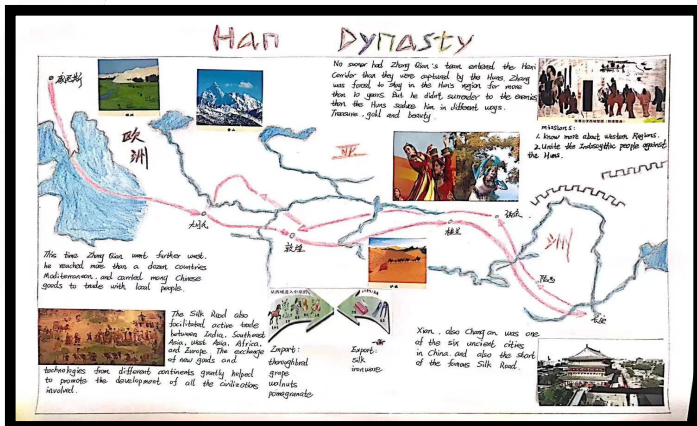 Han Dynasty
No sooner had Zhang Qian's team entered the Hexi
Corridor than they were captured by the Huns. Zhang
was forced to stay in the Hun's region for more
than 10 years. But he didn't surrender to the enemies
than the Huns seduce him in different ways.
Treasure, gold and beauty.
missions:
1. Know more about western Regions.
2. Unite the Indoscythic people against
the Huns.
威尼斯
欧
洲
亚
洲
大月氏
敦煌
楼兰
长安
This time Zhang Qian went further west,
he reached more than a dozen countries
Mediterranean, and carried many Chinese
goods to trade with local people.
The Silk Road also
facilitated active trade
between India, Southeast
Asia, West Asia, Africa,
and Europe. The exchange
of new goods and
technologies from different continents greatly helped
to promote the development of all the civilizations
involved.
Import:
thoroughbred
grape
walnuts
pomegranate
Export:
silk
ironware
Xian, also Chang'an was one
of the six ancient cities
in China and also the start
of the famous Silk Road.